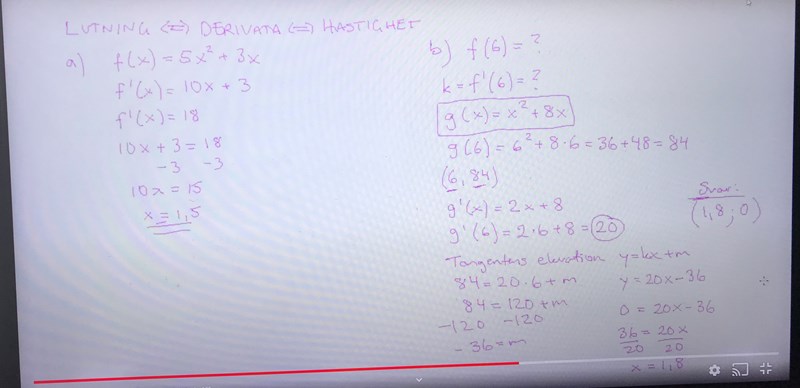 LUTNING <=> DERIVATA <=> HASTIGHET
a) f(x) = 5x² + 3x
f'(x) = 10x + 3
f'(x) = 18
10x + 3 = 18
-3 -3
10x = 15
x = 1,5
b) f(6) = ?
k = f'(6) = ?
g(x) = x² + 8x
g(6) = 6² + 8·6 = 36 + 48 = 84
(6, 84)
g'(x) = 2x + 8
g'(6) = 2·6 + 8 = 20
Tangentens ekvation y = kx + m
84 = 20·6 + m
84 = 120 + m
-120 -120
-36 = m
y = 20x - 36
0 = 20x - 36
36/20 = 20x/20
x = 1,8
Svar:
(1,8 ; 0)